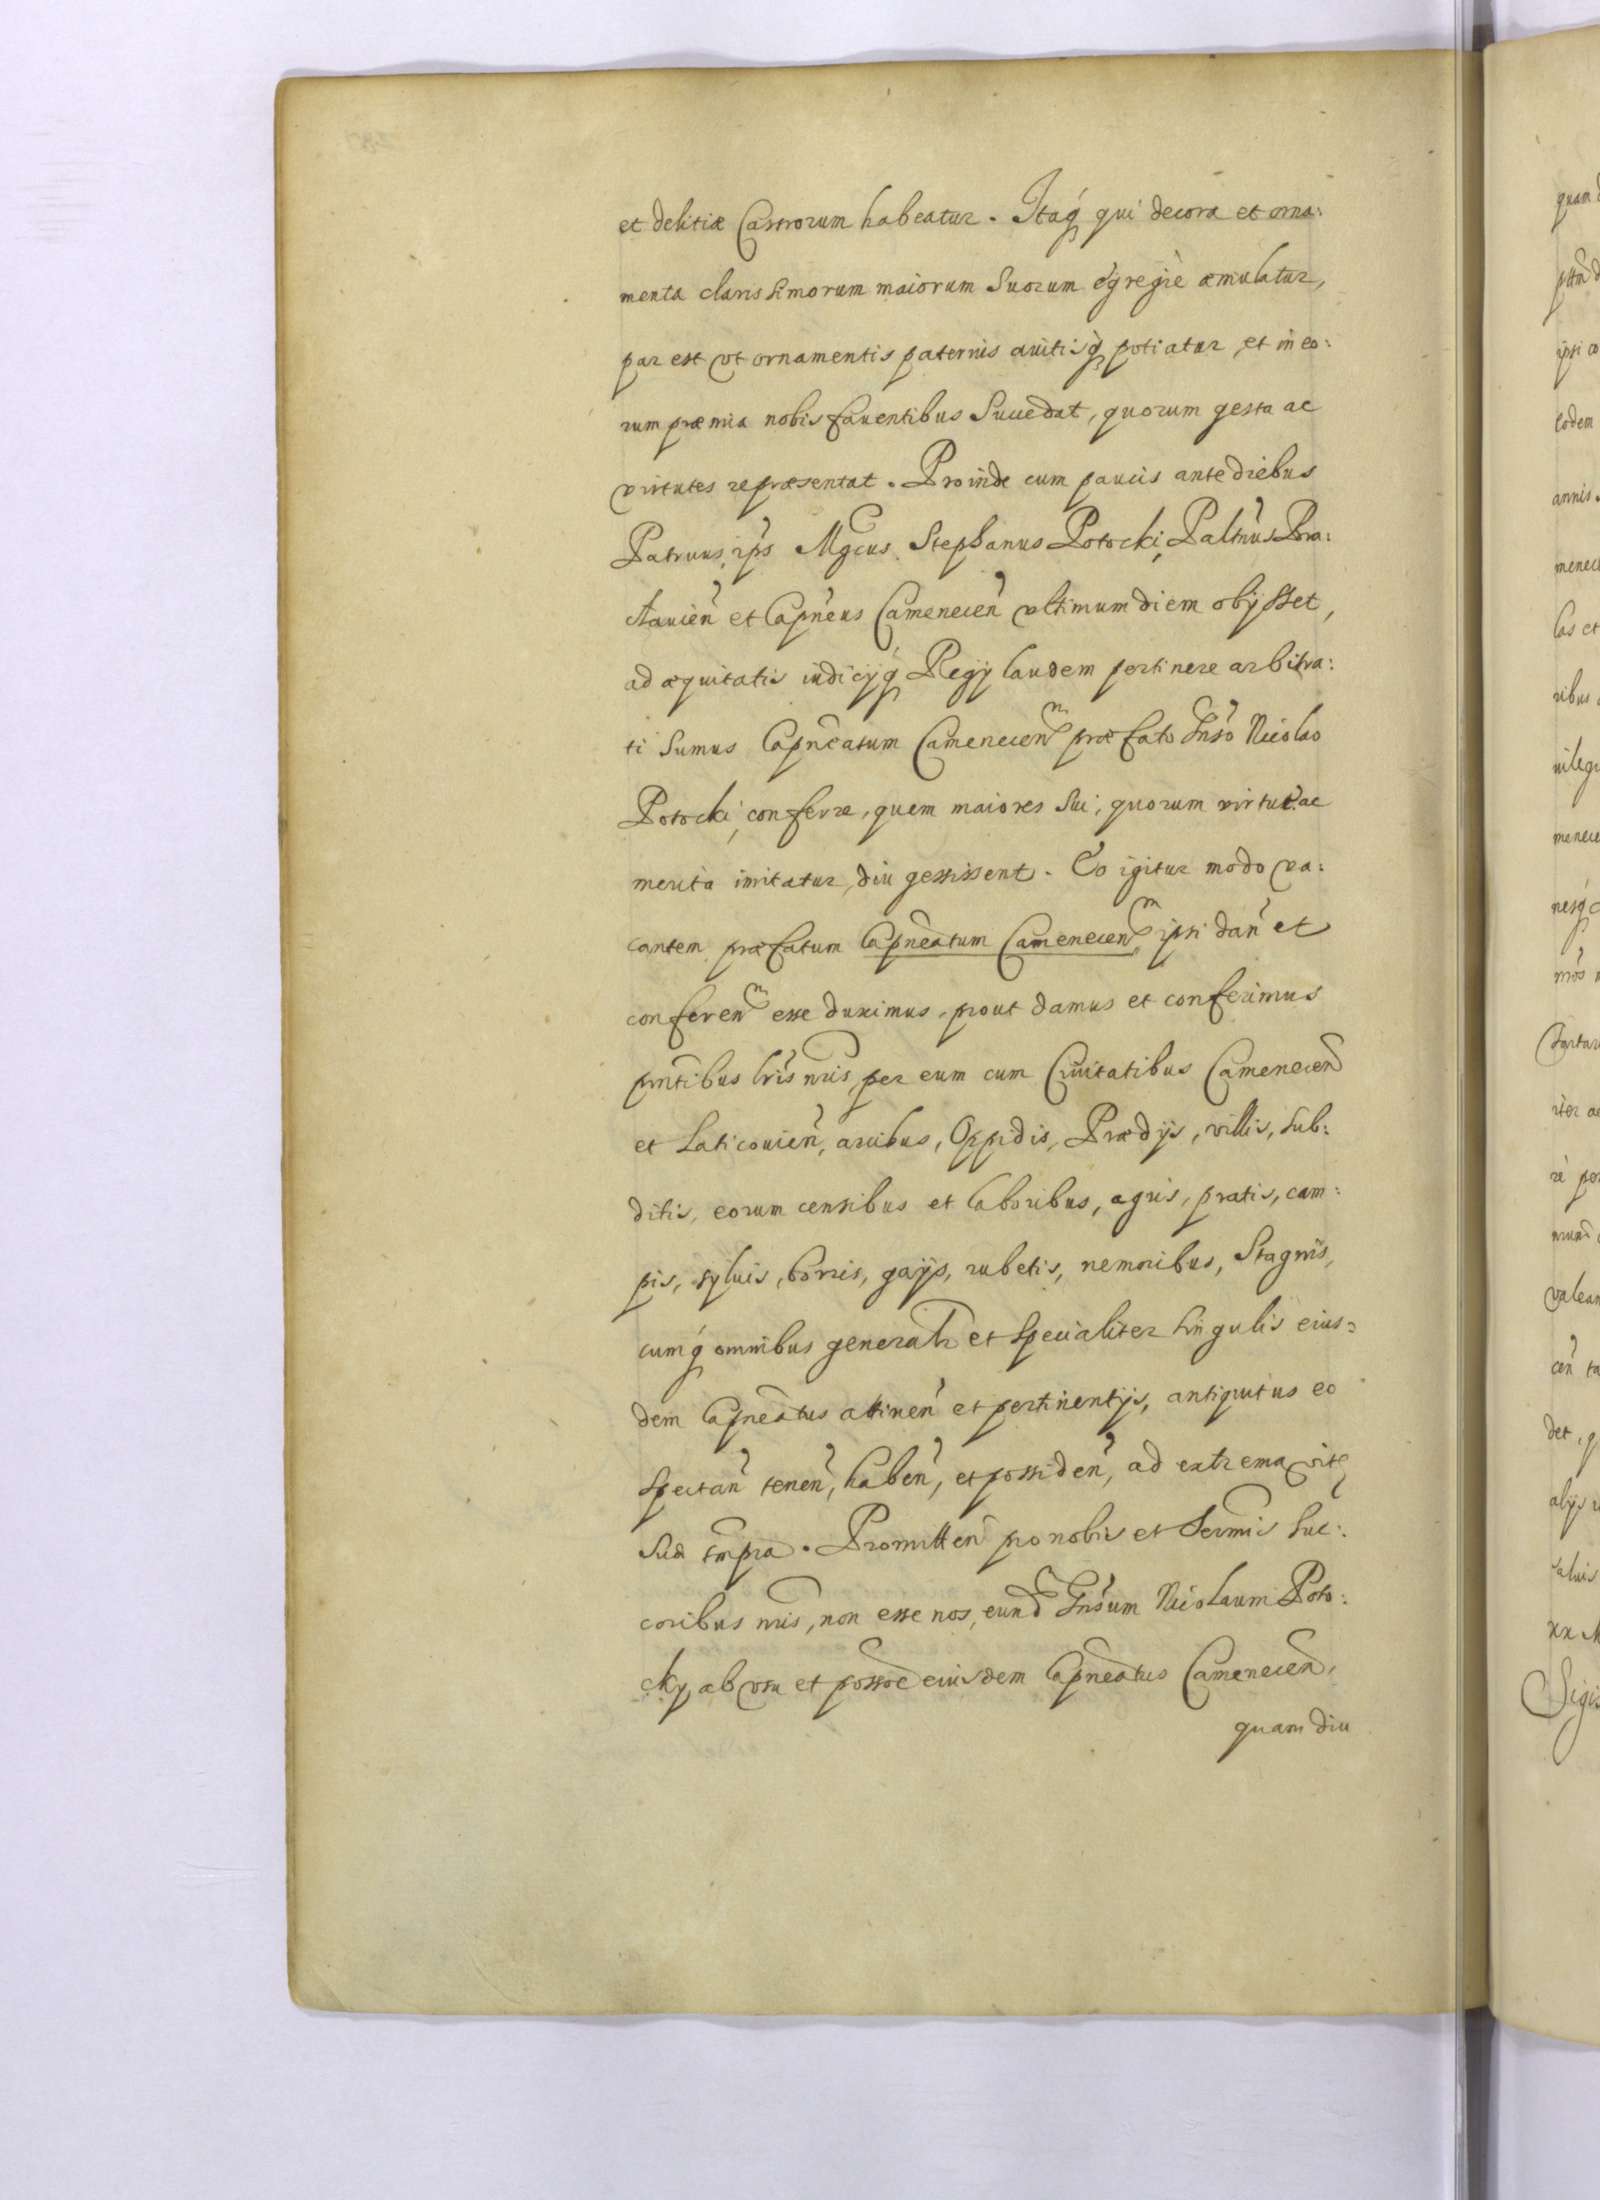 et delitiæ Castrorum habeatur. Itaq́ qui decora et orna:
menta claris simorum maiorum suorum egregiè æmulatur,
par est vt ornamentis paternis auitisq́ potiatur, et in eo:
rum præmia nobis fauentibus succedat, quorum gesta ac
virtutes repræsentat. Proinde cum paucis ante diebus
Patruus ips̃ Mgcus Stephanus Potocki, Paltnũs Bra:
clauień et Capñeus Cameneceń vltimum diem obijsset,
ad æquitatis iudicijq́ Regij laudem pertinere arbitra:
ti sumus Capñeatum Cameneceñm præfato Gnso Nicolao
Potocki, conferre, quem maiores sui, quorum virtut. ac
merita imitatur, diu gessissent. Eo igitur modo va:
cantem præfatum Capñeatum Cameneceñm ipsi dań et
confereñm esse duximus, prout damus et conferimus
pñtibus lris nris, per eum cum Ciuitatibus Camenecen̄
et Laticouień, arcibus, Oppidis, Prædijs, villis, sub:
ditis, eorum censibus et laboribus, agris, pratis, cam:
pis, syluis, borris, gajis, rubetis, nemoribus, Stagnis,
cumq́ omnibus generalr et specialiter singulis eius:
dem Capñeatus attineń et pertinentijs, antiquitus eo
spectań teneń, habeń, et possideń, ad extrema vitę
suæ tmpra. Promitteñ pro nobis et Sermis suc:
coribus nris, non esse nos, eund̃ Gnsum Nicolaum Poto:
cky ab vsu et possoẽ eiusdem Capñeatus Camenecen̄,
quam diu
quam
ipsi
eodem
annis
menec
las et
ribus
uileg
menece
nesq́
ritor
rè per
valean
ceń ta
det, q
alijs
saluis
Sigis